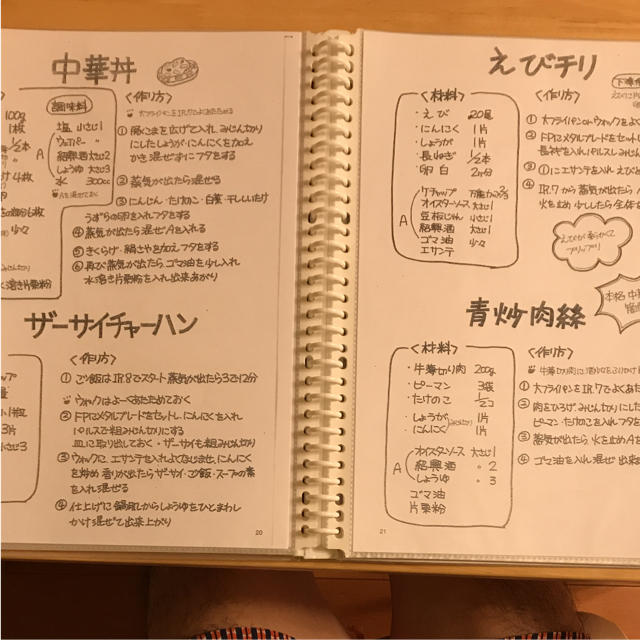 中華丼
100g
1枚
1/2本
4枚
6枚
少々
溶き片栗粉
調味料
塩 小さじ1
ウェイパー 〃
A
紹興酒 大さじ2
しょうゆ 大さじ3
水 300cc
Aを混ぜておく
〈作り方〉
大フライパンをIR.7でよくあたためる
① 豚こまを広げて入れ みじん切り
にしたしょうが、にんにくを加え
かき混ぜずにフタをする
② 蒸気が出たら混ぜる
③ にんじん・たけのこ・白菜・干ししいたけ
うずらの卵を入れフタをする
④ 蒸気が出たら 混ぜAを入れる
⑤ きくらげ・絹さやを加えフタをする
⑥ 再び蒸気が出たら、ゴマ油を少し入れ
水溶き片栗粉を入れ出来あがり
ザーサイチャーハン
〈作り方〉
① ご飯はIR.8でスタート 蒸気が出たら3で12分
ウォックはよーくあたためておく
② FPにメタルブレードをセットし、にんにくを入れ
パルスで粗みじん切りにする
皿に取り出しておく・ザーサイも粗みじん切り
③ ウォックに、エサンテを入れよくなじませ、にんにく
を炒め 香りが出たらザーサイ・ご飯・スープの素
を入れ混ぜる
④ 仕上げに 鍋肌からしょうゆをひとまわし
かけ混ぜて出来上がり
20
えびチリ
〈材料〉
・えび 20尾
・にんにく 1片
・しょうが 1片
・長ねぎ 1/2本
・卵白 2ヶ分
A
ケチャップ
オイスターソース 大さじ1
豆板じゃん 小さじ1
紹興酒 大さじ1
ゴマ油 少々
エサンテ
〈作り方〉
① 大フライパンorウォックをよく
② FPにメタルブレードをセットし
長ネギを入れ、パルスしみじん
③ ①にエサンテを入れえび
④ IR.7から蒸気が出たら
火を止め 少ししたら全体を
えびが柔らかくて
プリップリ
本格中華
青炒肉絲
〈材料〉
・牛薄切り肉 200g
・ピーマン 3袋
・たけのこ 1/2コ
・しょうが みじん切り 1片
・にんにく 1片
A
オイスターソース 大さじ1
紹興酒 〃 2
しょうゆ 〃 3
ゴマ油
片栗粉
〈作り方〉
① 大フライパンをIR.7でよくあた
② 肉をひろげ、みじん切りにした
ピーマン・たけのこを入れフタを
③ 蒸気が出たら 火を止めA
④ ゴマ油を入れ混ぜ 出来
21